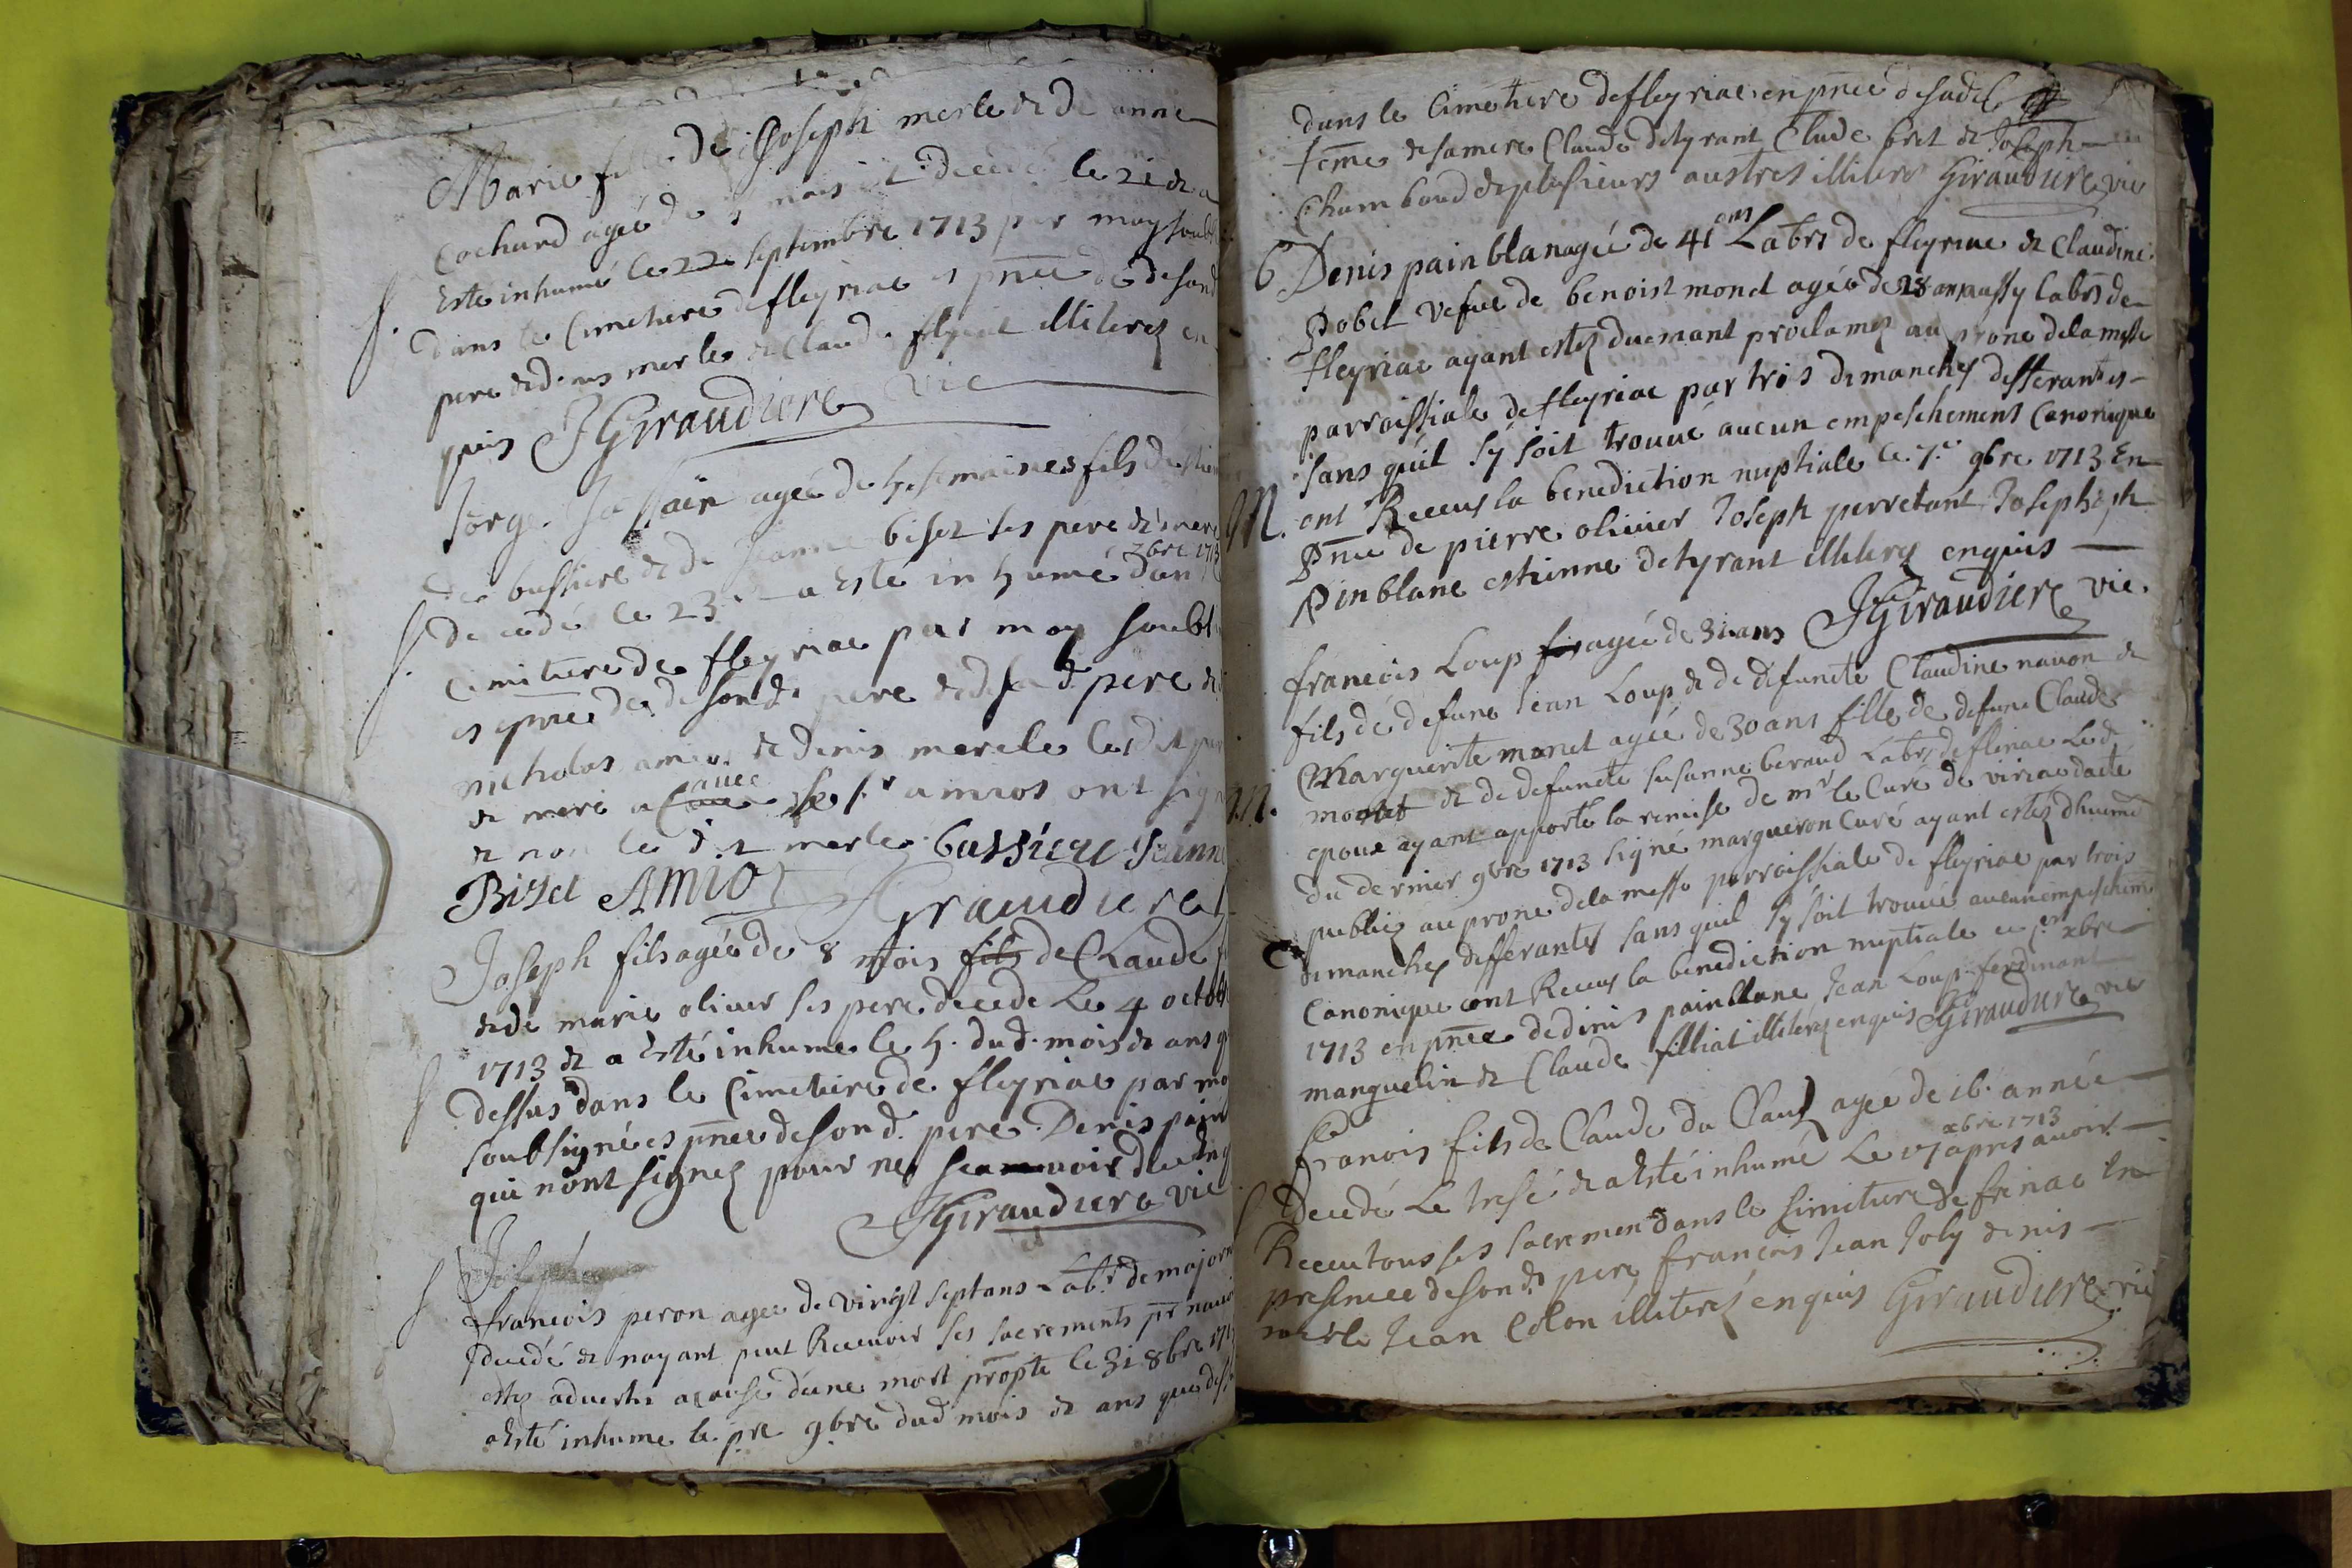 Marie fille de Joseph merle & de anne
Cochard agée de mois decedé le 21 & a
Esté inhumé le 22e septembre 1713 par moy soub
S. dans le Cimetiere de fleyriac es pnce de de son d
pere & denis merle & Claude illiterez en
quis JGiraudiere vic
Jorge agée de 5 semaines fils
de bussiere & de Jeanne biset ses pere & mere
7bre 1713
S. decedé le 23 & a Esté inhumé dan
Cimitiere de fleyriac par moy soubs
es pnce de de son d. pere & de sa d. pere &
nicholas amiot & denis merele les dit
& mere avec le sr amios ont sig
& non le dit merle bussiere Jeanne
Bizet AMiot JGiraudiere
Joseph fils agée de 8 mois fils de Claude
& de marie oliuier ses pere decede Le 4 octob
1713 & a Esté inhume le 5. du d. mois & ans q
S dessus dans le Cimetiere de fleyriac par mo
soubsigné es pnce de son d. pere Denis pain
qui n'ont signez pour ne scauoir de
JGiraudiere vic
Joseph
S francois peron agee de vingt sept ans Labr. de majorn
decedé & nayant peut Receuoir ses sacrements pr nauoi
estez aduertis a cause dune mort propte le 31 8bre 171
a Esté inhume le pre 9bre dud mois & ans que dess
dans le Cimetiere de fleyriac en pnce de sad
feme & samere Claude detyrant Clude bret & Joseph
Chambaud & plusieurs austres illiters Giraudiere vic
6 Denis painblan agée de 41 ans Labrs de fleyriac & Claudine
Pobel vefue de benoist monet agée de 28 ans aussy labrs de
fleyriac ayant estez duemant proclamez au prone de la messe
parroissiale de fleyriac par trois dimanches desferantes
sans quil sy soit trouué aucun empeschement Canonique
M. ont Receus la benediction nuptiale le 7e 9bre 1713 En
Pnce de pierre oliuier Joseph perretant Josephseph
Pinblanc estienne detyrant illiterz enquis
JGiraudiere vic.
francois Loup fis agée de 31 ans
fils de defunc Jean Loup & de defuncte Claudine nauon &
Marguerite monet agée de 30 ans fille de defunc Claude
M. monet & de defuncte susanne beraud Labrs de flériac Le d
epoux ayant apporté la remise de mr le Curé de viriac datté
du dernier 9bre 1713 signé margueron Curé ayant estez dhuemt
publiez au prone de la messe parroissiale de fleyriac par trois
dimanches differantes sans quil sy soit trouué aucun empeschemt
Canonique ont Receus la benediction nuptiale ce per xbre
1713 en pnce de denis painblanc Jean Loup ferdinant
manguelin & Claude filliat illiterez enquis JGiraudiere vic
francois fils de Claude du Clauz agée de 16. année
xbre 1713
S Decedé Le tresé & a Esté inhumé Le 17 apres auoir
Receu tous ses sacremen dans le simitiere de fririac En
presence de son d. pere francois Jean Joly denis
merle Jean Colon illiterez enquis Giraudiere vic